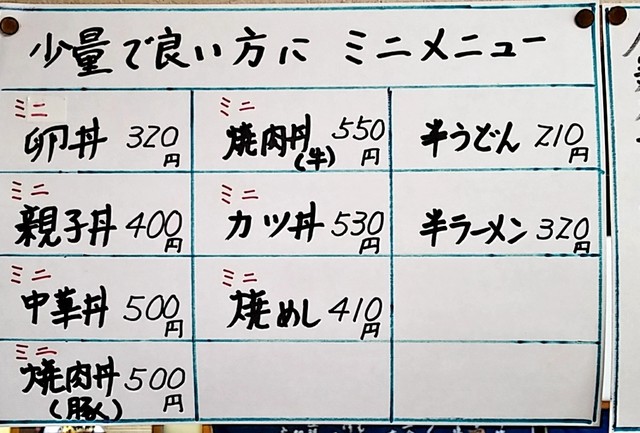 少量で良い方に ミニメニュー
ミニ
卵丼 320円
ミニ
親子丼 400円
ミニ
中華丼 500円
ミニ
焼肉丼 500円
(豚)
ミニ
焼肉丼 550円
(牛)
ミニ
カツ丼 530円
ミニ
焼めし 410円
半うどん 210円
半ラーメン 320円